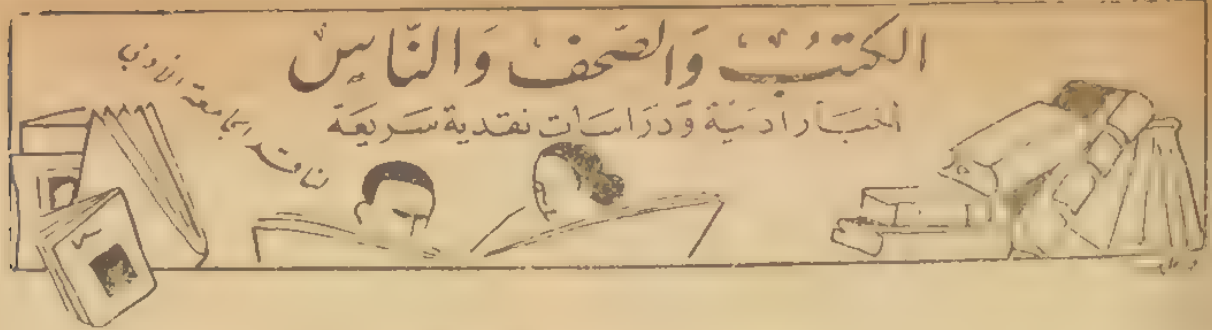 الكتبُ وَالصّحف وَالنّاسِ
أخبار ادبية وَدرَاسَات نقدية سَريعَة
لناقد الجامعة الأدبي